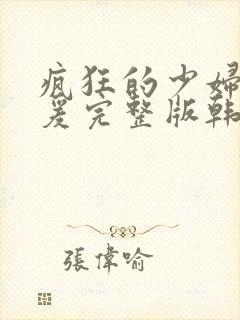 疯狂的少婦
爰完整版韩
張偉喻